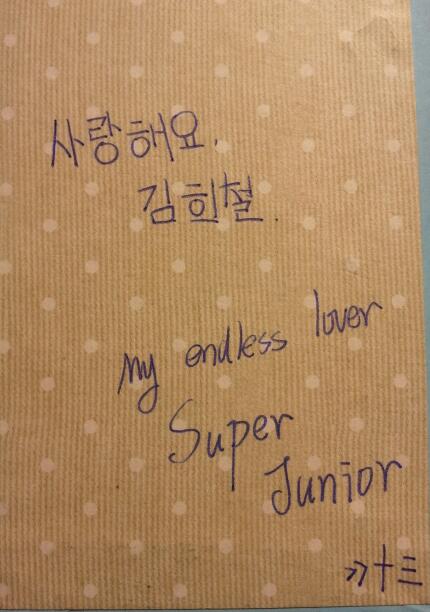 사랑해요.
김희철.
my endless lover
Super
Junior
>>十三